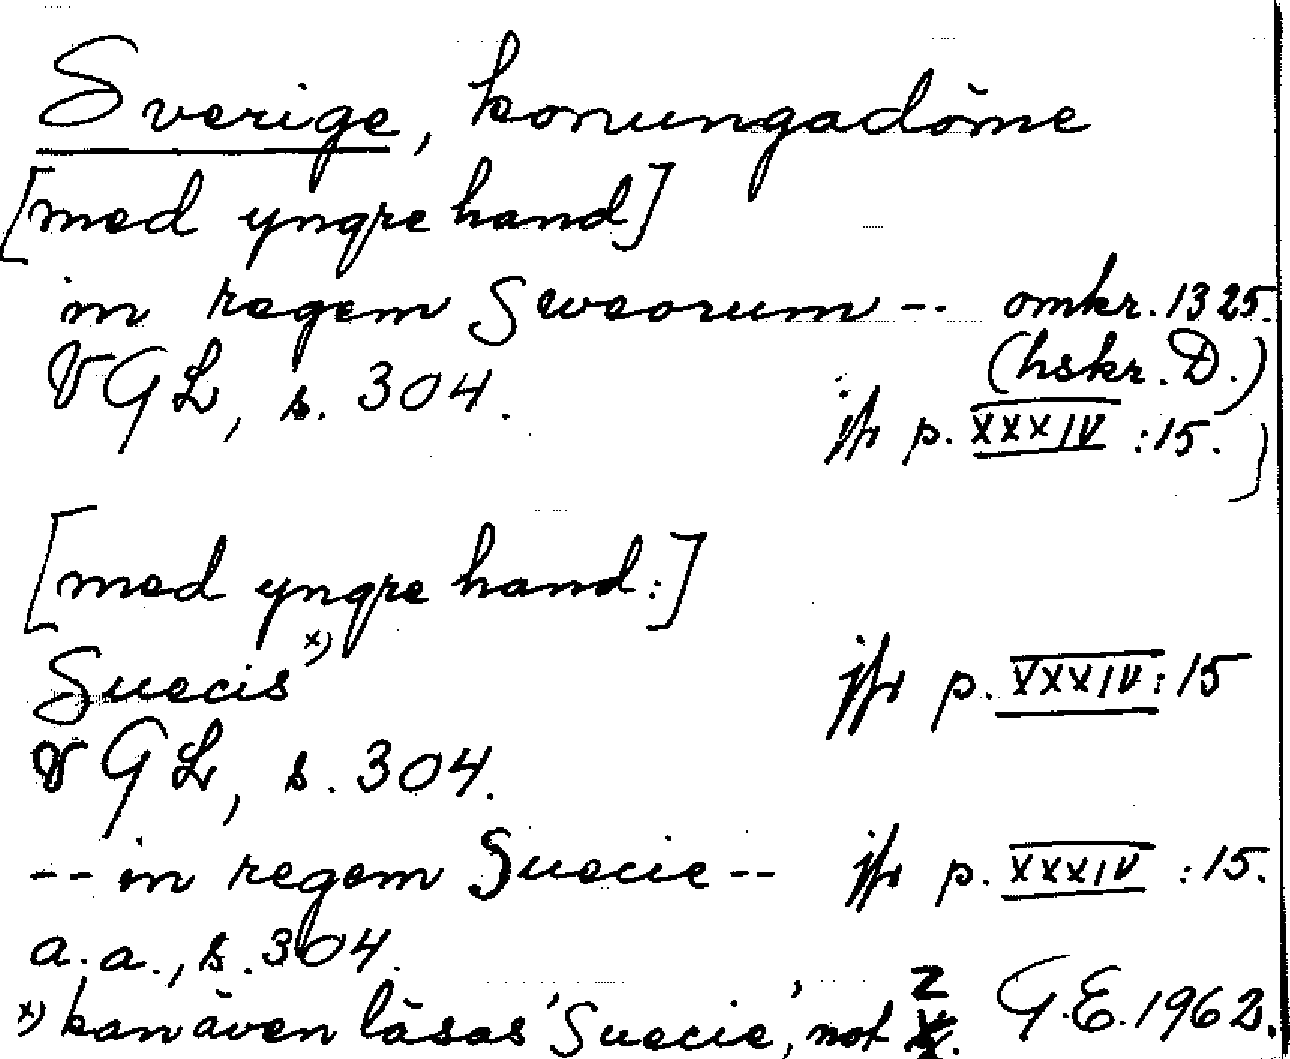 Sverige, konungadöme
[med yngre hand]
in regem Sweorum -- omkr. 1325.
(hskr. D.)
VGL, s. 304. jfr p. XXXIV :15.)
[med yngre hand:]
Suecis x) jfr p. XXXIV:15
VGL, s. 304.
-- in regem Suecie -- jfr p. XXXIV :15.
a.a., s. 304.
x) kan även läsas 'Suecie', not 2. G.E. 1962.